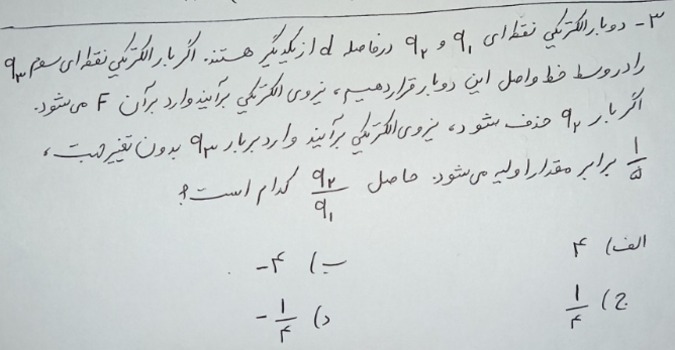 ۳- دو بار الکتریکی نقطه‌ای q₁ و q₂ در فاصله d از یکدیگر هستند. اگر بار الکتریکی نقطه‌ای سوم q₃
را در وسط خط واصل این دو بار قرار دهیم، نیروی الکتریکی برآیند وارد بر آن F می‌شود.
اگر بار q₂ حذف شود، نیروی الکتریکی برآیند وارد بر بار q₃ بدون تغییر جهت،
۱/۵ برابر مقدار اولیه می‌شود. حاصل q₂/q₁ کدام است؟
الف) ۴ ب) ۴-
ج) ۱/۴ د) ۱/۴-